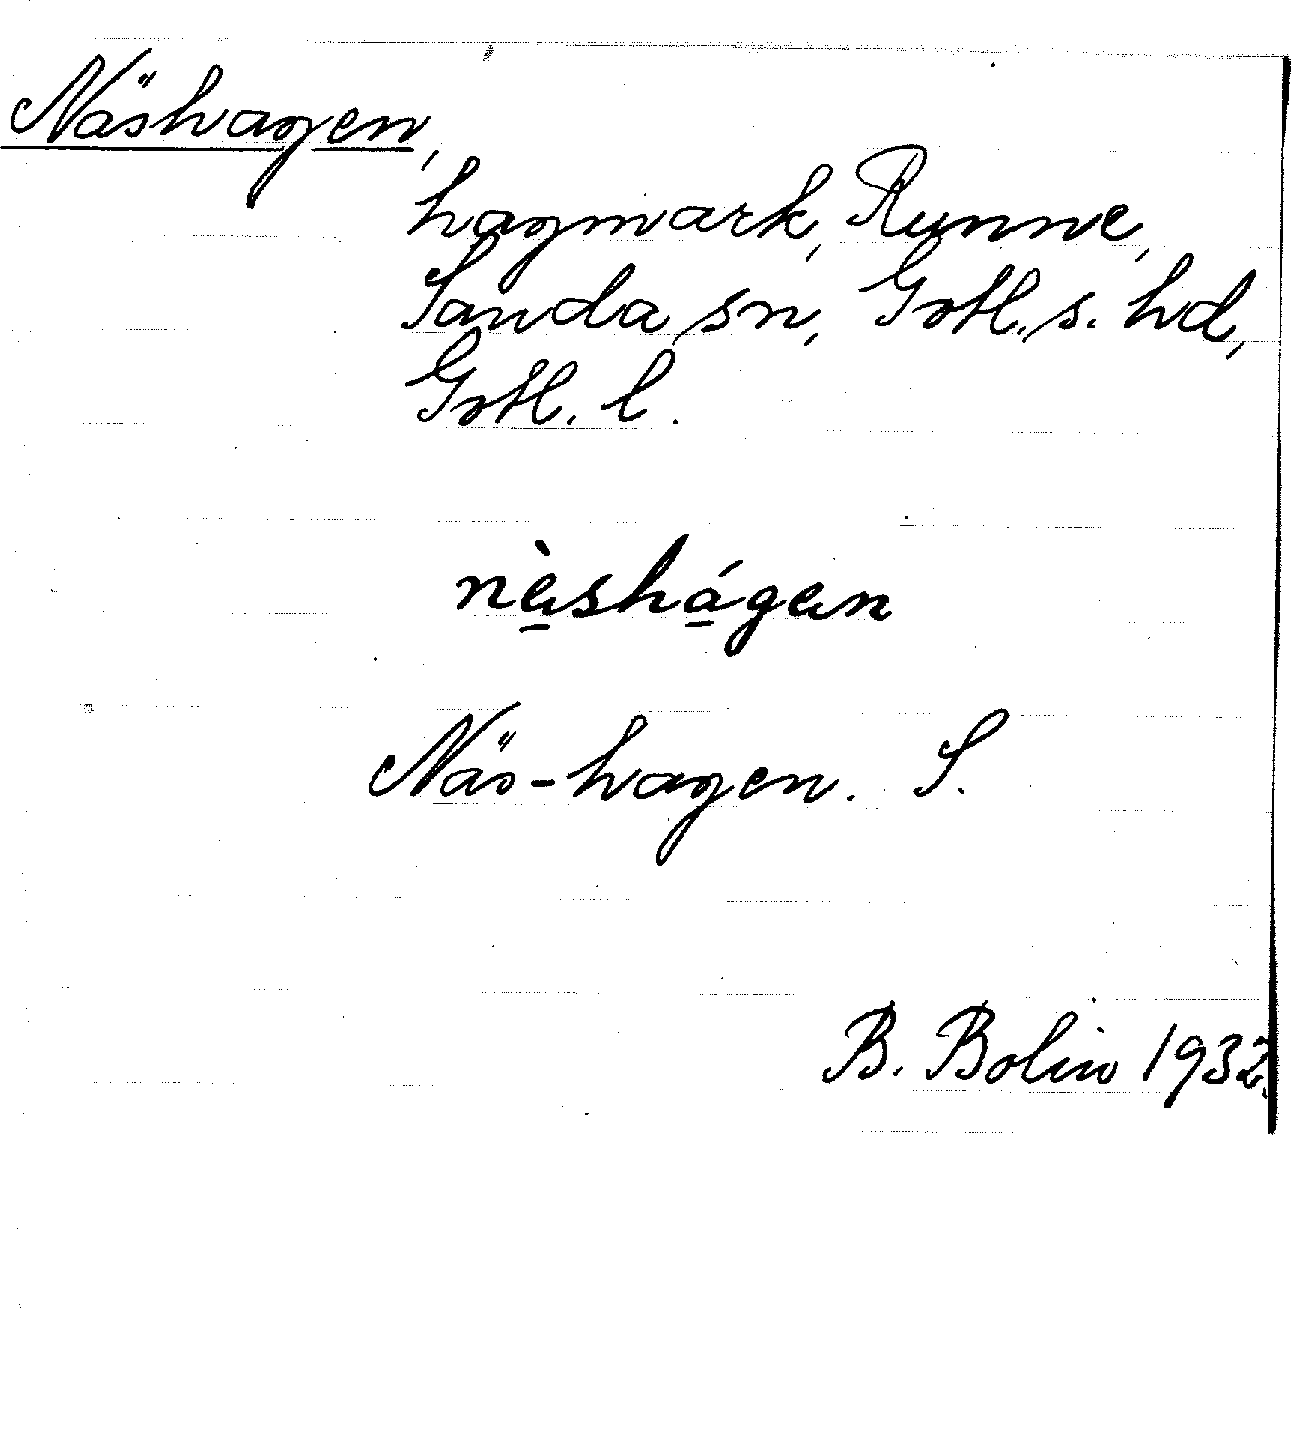 Näshagen,
hagmark, Runne,
Sanda sn, Gotl. s. hd,
Gotl. l.
nè̱shá̱gen
Näs-hagen. S.
B. Bolin 1932.